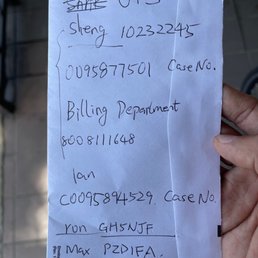 Sheng 10232245
0095877501 Case No.
Billing Department
8008111648
Ian
C0095894529 Case No.
run GH5NJF
Max PZDIFA